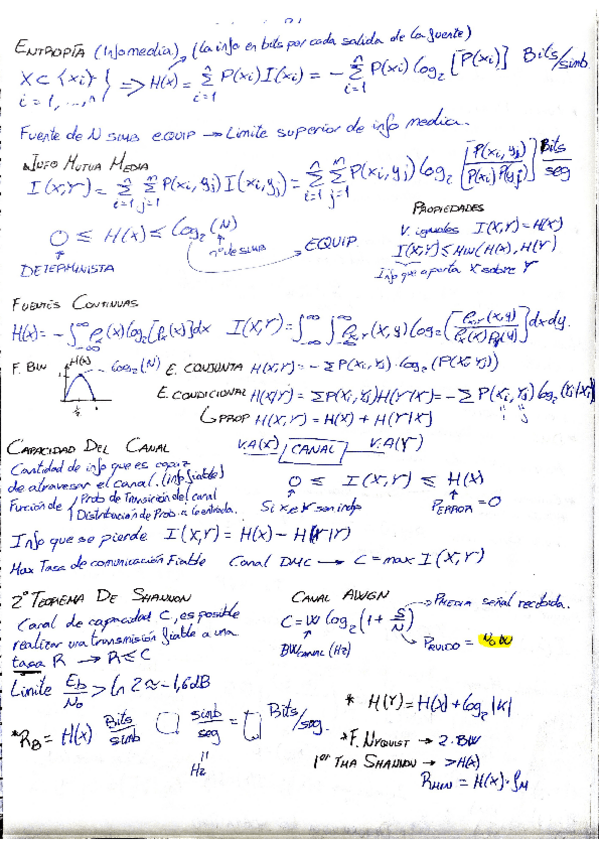 ENTROPÍA (Info media) (La info en bits por cada salida de la fuente)
X ⊂ {xi} ⟹ H(x) = Σ P(xi) I(xi) = - Σ P(xi) log₂ [P(xi)] Bits/simb.
i = 1, ..., n i=1 i=1
Fuente de N simb equip → Limite superior de info media.
Info Mutua Media
I(X,Y) = Σ Σ P(xi, yj) I(xi, yj) = Σ Σ P(xi, yj) log₂ [P(xi, yj) / P(xi) P(yj)] Bits/seg
i=1 j=1 i=1 j=1
PROPIEDADES
V. iguales I(X,Y) = H(X)
I(X,Y) ≤ MIN (H(X), H(Y))
Info que aporta X sobre Y
0 ≤ H(X) ≤ log₂ (N) → EQUIP
nº de simb
DETERMINISTA
FUENTES CONTINUAS
H(x) = - ∫ Px(x) log₂ [Px(x)] dx I(X,Y) = ∫ ∫ Px,y (x,y) log₂ [Px,y (x,y) / Px(x) Py(y)] dx dy.
F. BIN H(x) log₂ (N) E. CONJUNTA H(X,Y) = - Σ P(Xi, Yj) · log₂ (P(Xi, Yj))
1/2
E. CONDICIONAL H(X|Y) = Σ P(Xi, Yj) H(Y|X) = - Σ P(Xi, Yj) log₂ (Yj|Xi)
PROP H(X,Y) = H(X) + H(Y|X)
CAPACIDAD DEL CANAL V.A(X) CANAL V.A(Y)
Cantidad de info que es capaz
de atravesar el canal. (info fiable)
Función de { Prob de Transición del canal
Distribución de Prob. a la entrada.
0 ≤ I(X,Y) ≤ H(X)
Si X e Y son indp PERROR = 0
Info que se pierde I'(X,Y) = H(X) - H(Y|Y)
Max Tasa de comunicación Fiable Canal DMC → C = max I(X,Y)
2º TEOREMA DE SHANNON
Canal de capacidad C, es posible
realizar una transmisión fiable a una
tasa R → R ≤ C
CANAL AWGN → PMEDIA señal recibida.
C = W log₂ (1 + S/N)
BWCANAL (Hz) PRUIDO = N₀W
Limite Eb/N₀ > ln 2 ≈ -1,6dB
* RB = H(X) Bits/simb simb/seg = Bits/seg.
Hz
* H(Y) = H(X) + log₂ |K|
* F. NYQUIST → 2·BW
1er TMA SHANNON → > H(X)
RMIN = H(X)·fM